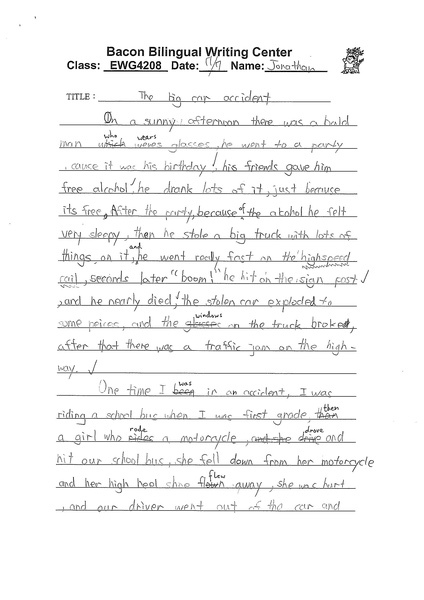 Bacon Bilingual Writing Center
Class: EWG4208 Date: 11/17 Name: Jonathan
TITLE: The big car accident
On a sunny afternoon there was a bald
who wears
man which weres glasses, he went to a party
, cause it was his birthday! his friends gave him
free alcohol! he drank lots of it, just because
its free, After the party, because of the alcohol he felt
very sleepy, then he stole a big truck with lots of
and
things on it, he went really fast on the highspeed
rail, seconds later "boom!" he hit on the sign post
, and he nearly died, the stolen car exploded to
windows
some peices, and the glasses on the truck broked,
after that there was a traffic jam on the high-
way.
was
One time I been in an accident, I was
then
riding a school bus when I was first grade than
rode drove
a girl who rides a motorcycle, and she drive and
hit our school bus, she fell down from her motorcycle
flew
and her high heel shoe flown away, she was hurt
, and our driver went out of the car and